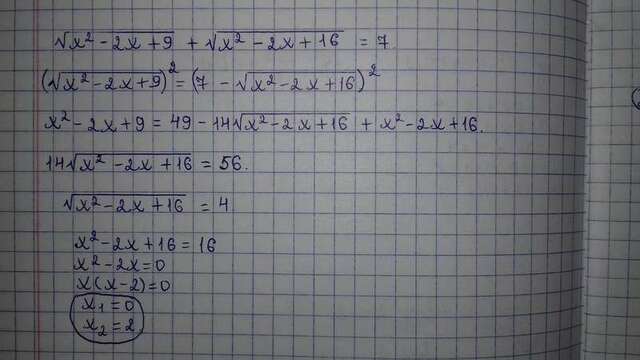 √x² - 2x + 9 + √x² - 2x + 16 = 7
(√x² - 2x + 9)² = (7 - √x² - 2x + 16)²
x² - 2x + 9 = 49 - 14√x² - 2x + 16 + x² - 2x + 16.
14√x² - 2x + 16 = 56.
√x² - 2x + 16 = 4
x² - 2x + 16 = 16
x² - 2x = 0
x(x - 2) = 0
x₁ = 0
x₂ = 2